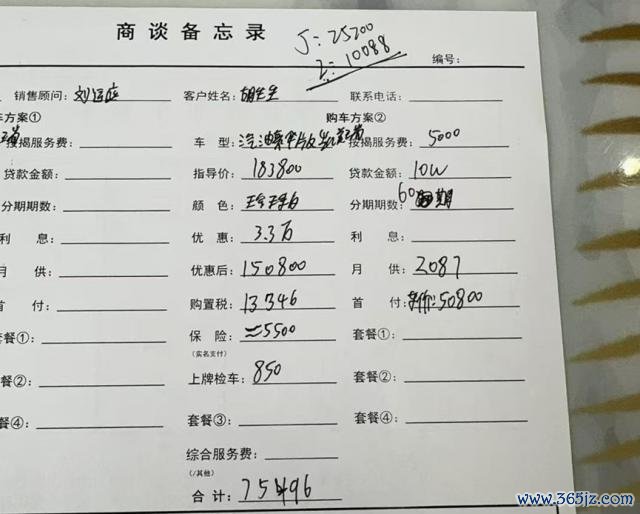 商谈备忘录
J: 25200
Z: 10088
编号:
销售顾问: 客户姓名: 胡先生 联系电话:
车方案① 购车方案②
按揭服务费: 车 型: 按揭服务费: 5000
贷款金额: 指导价: 183800 贷款金额: 10W
分期期数: 颜 色: 分期期数: 60期
利 息: 优 惠: 3.3万 利 息:
月 供: 优惠后: 150800 月 供: 2087
首 付: 购置税: 13346 首 付: 50800
套餐①: 保 险: ≈5500 套餐①:
(实名支付)
套餐②: 上牌检车: 850 套餐②:
套餐④: 套餐③: 套餐④:
综合服务费:
(/其他)
合 计: 75496
www.365jz.com